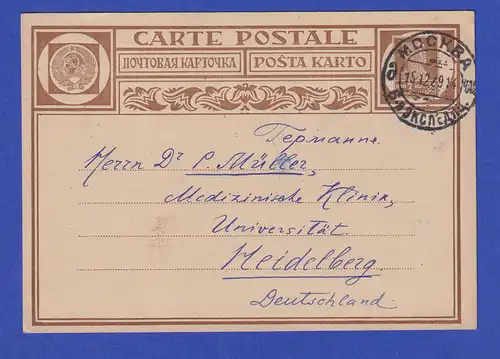 CARTE POSTALE
ПОЧТОВАЯ КАРТОЧКА
POŜTA KARTO
МОСКВА
15.12.29.14
ЭКСПЕД.
Германие.
Herrn Dr P. Müller,
Medizinische Klinik,
Universität.
Heidelberg.
Deutschland.